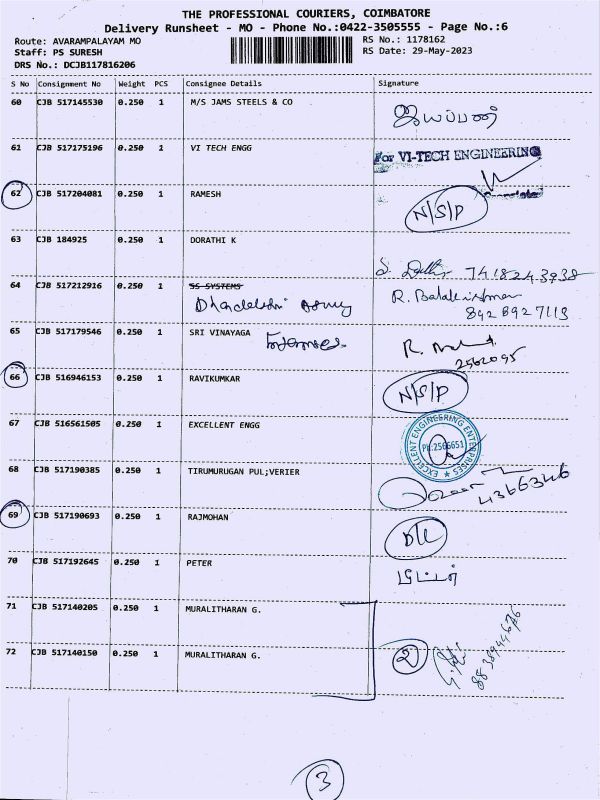 THE PROFESSIONAL COURIERS, COIMBATORE
Delivery Runsheet - MO - Phone No.:0422-3505555 - Page No.:6
Route: AVARAMPALAYAM MO
RS No.: 1178162
Staff: PS SURESH
RS Date: 29-May-2023
DRS No.: DCJB117816206
S No Consignment No Weight PCS Consignee Details Signature
60 CJB 517145530 0.250 1 M/S JAMS STEELS & CO
ஐயப்பன்
61 CJB 517175196 0.250 1 VI TECH ENGG
For VI-TECH ENGINEERING
62 CJB 517204081 0.250 1 RAMESH
N/S/P
63 CJB 184925 0.250 1 DORATHI K
7418243938
64 CJB 517212916 0.250 1 SS SYSTEMS
R. Balakrishnan
8928927113
65 CJB 517179546 0.250 1 SRI VINAYAGA
2562095
66 CJB 516946153 0.250 1 RAVIKUMKAR
N/S/P
67 CJB 516561505 0.250 1 EXCELLENT ENGG
EXCELLENT ENGINEERING ENTERPRISES
Ph:2566651
68 CJB 517190385 0.250 1 TIRUMURUGAN PUL;VERIER
4366346
69 CJB 517190693 0.250 1 RAJMOHAN
D/L
70 CJB 517192645 0.250 1 PETER
பீட்டர்
71 CJB 517140205 0.250 1 MURALITHARAN G.
72 CJB 517140150 0.250 1 MURALITHARAN G.
2
3